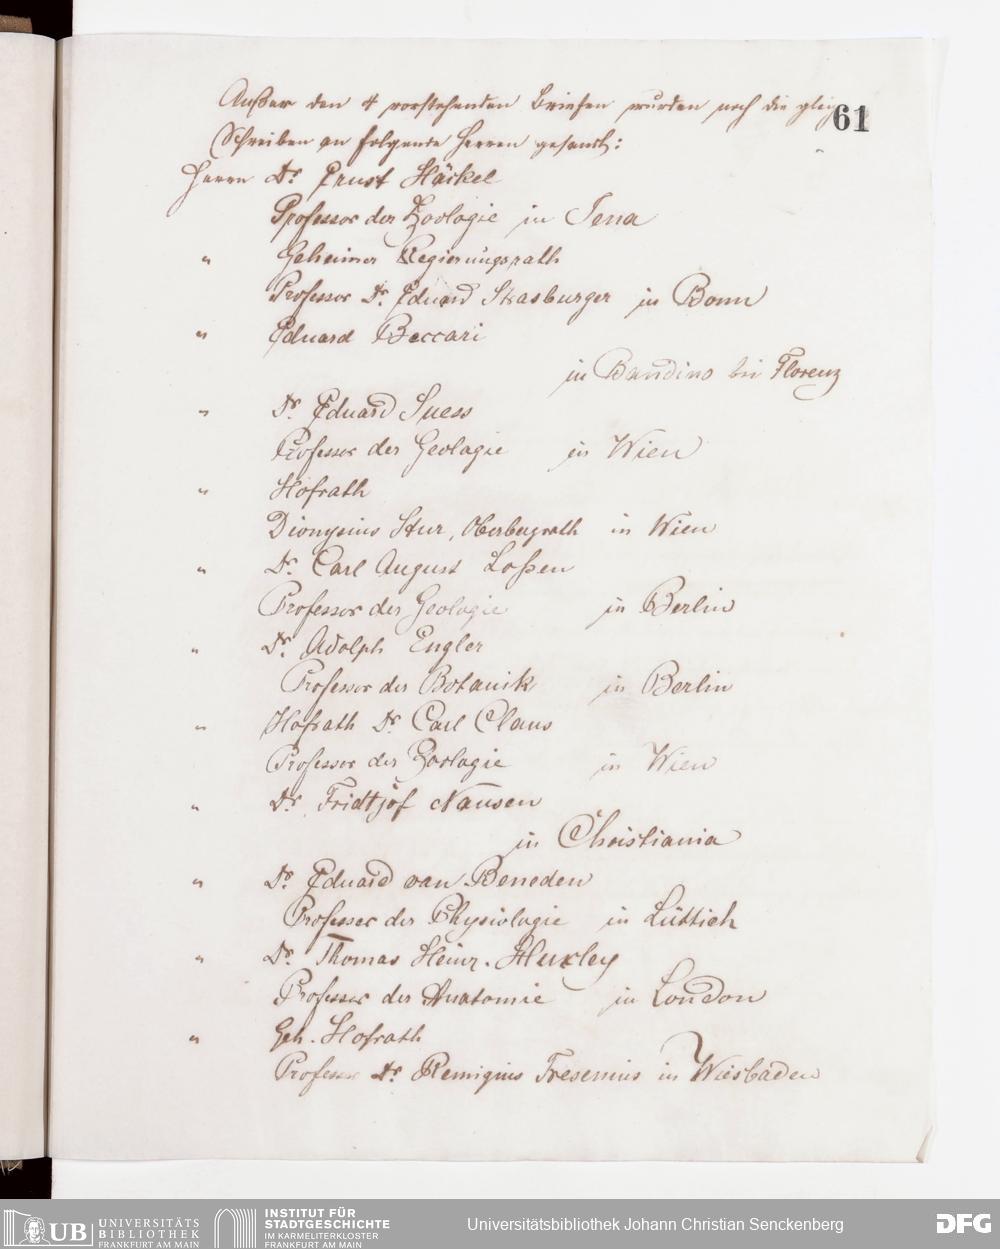 Außer den 4 vorstehenden Briefen wurden noch die gleichen
61
Schreiben an folgende Herren gesandt:
Herrn Dr. Ernst Häckel
Professor der Zoologie in Jena
" Geheimer Regierungsrath
Professor Dr. Eduard Strasburger in Bonn
" Eduard Beccari
in Bandino bei Florenz
" Dr. Eduard Suess
Professor der Geologie in Wien
" Hofrath
Dionysius Stur, Oberbergrath in Wien
" Dr. Carl August Loßen
Professor der Geologie in Berlin
" Dr. Adolph Engler
Professor der Botanik in Berlin
" Hofrath Dr. Carl Claus
Professor der Zoologie in Wien
" Dr. Fridtjof Nansen
in Christiania
" Dr. Eduard van Beneden
Professor der Physiologie in Lüttich
" Dr. Thomas Heinr. Huxley
Professor der Anatomie in London
" Geh. Hofrath
Professor Dr. Remigius Fresenius in Wiesbaden
UB UNIVERSITÄTS
BIBLIOTHEK
FRANKFURT AM MAIN
INSTITUT FÜR
STADTGESCHICHTE
IM KARMELITERKLOSTER
FRANKFURT AM MAIN
Universitätsbibliothek Johann Christian Senckenberg
DFG